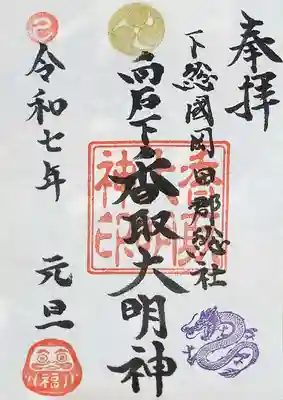 奉拝
下総國岡田郡総社
向石下香取大明神
令和七年 元旦
香取
大明
神印
福